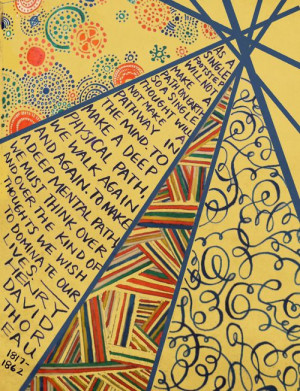 AS A
SINGLE
FOOTSTEP
WILL NOT
MAKE A
PATH ON EARTH,
SO A SINGLE
THOUGHT WILL
NOT MAKE A
PATHWAY IN
THE MIND. TO
MAKE A DEEP
PHYSICAL PATH,
WE WALK AGAIN
AND AGAIN. TO MAKE
A DEEP MENTAL PATH,
WE MUST THINK OVER
AND OVER THE KIND OF
THOUGHTS WE WISH
TO DOMINATE OUR
LIVES.
HENRY
DAVID
THOR
EAU
1817-
1862